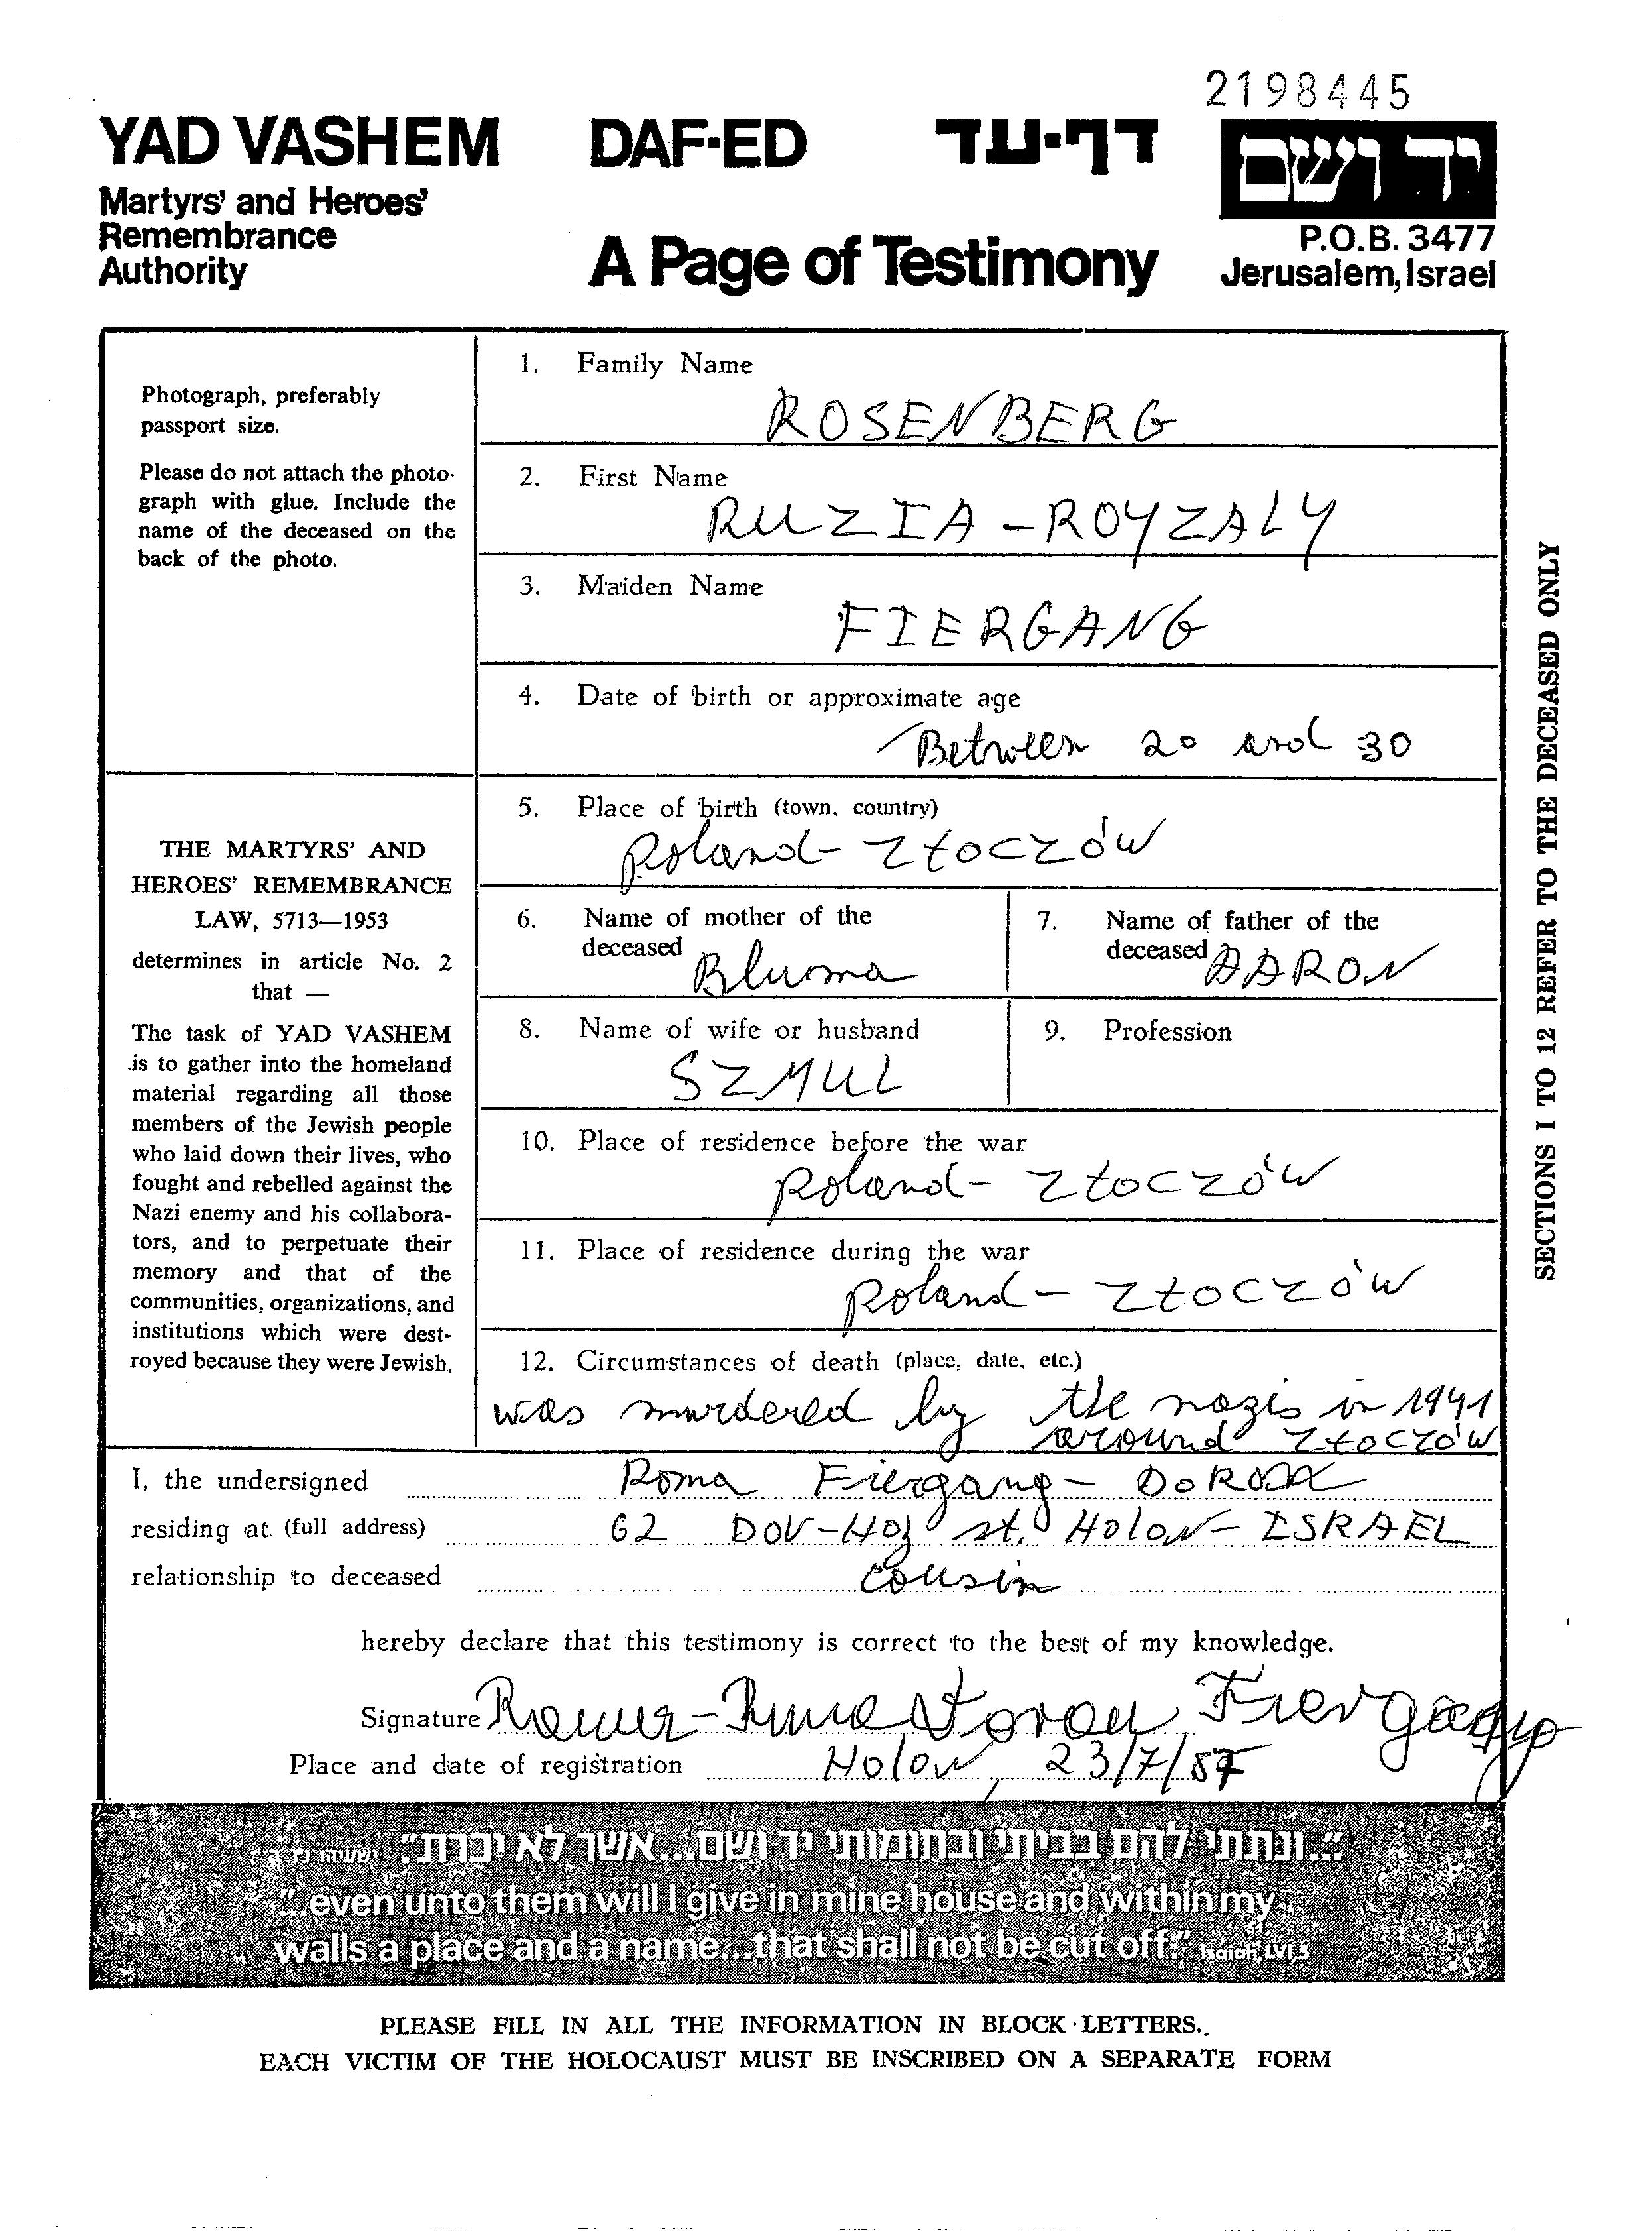 2198445
YAD VASHEM DAF-ED דף-עד יד ושם
Martyrs' and Heroes'
Remembrance
Authority
A Page of Testimony
P.O.B. 3477
Jerusalem, Israel
Photograph, preferably
passport size.
Please do not attach the photo-
graph with glue. Include the
name of the deceased on the
back of the photo.
THE MARTYRS' AND
HEROES' REMEMBRANCE
LAW, 5713—1953
determines in article No. 2
that —
The task of YAD VASHEM
is to gather into the homeland
material regarding all those
members of the Jewish people
who laid down their lives, who
fought and rebelled against the
Nazi enemy and his collabora-
tors, and to perpetuate their
memory and that of the
communities, organizations, and
institutions which were dest-
royed because they were Jewish.
1. Family Name
ROSENBERG
2. First Name
RUZIA - ROYZALY
3. Maiden Name
FIERGANG
4. Date of birth or approximate age
Between 20 and 30
5. Place of birth (town, country)
Poland - Złoczów
6. Name of mother of the
deceased Bluma
7. Name of father of the
deceased AARON
8. Name of wife or husband
SZMUL
9. Profession
10. Place of residence before the war
Poland - Złoczów
11. Place of residence during the war
Poland - Złoczów
12. Circumstances of death (place, date, etc.)
was murdered by the nazis in 1941
around Złoczów
SECTIONS 1 TO 12 REFER TO THE DECEASED ONLY
I, the undersigned Roma Fiergang -
residing at (full address) 62 DOV-HOZ st. HOLON - ISRAEL
relationship to deceased cousin
hereby declare that this testimony is correct to the best of my knowledge.
Signature
Place and date of registration Holon, 23/7/87
"...ונתתי להם בביתי ובחומותי יד ושם...אשר לא יכרת." ישעיהו
"...even unto them will I give in mine house and within my
walls a place and a name...that shall not be cut off:" Isaiah, LVI,5
PLEASE FILL IN ALL THE INFORMATION IN BLOCK LETTERS.
EACH VICTIM OF THE HOLOCAUST MUST BE INSCRIBED ON A SEPARATE FORM